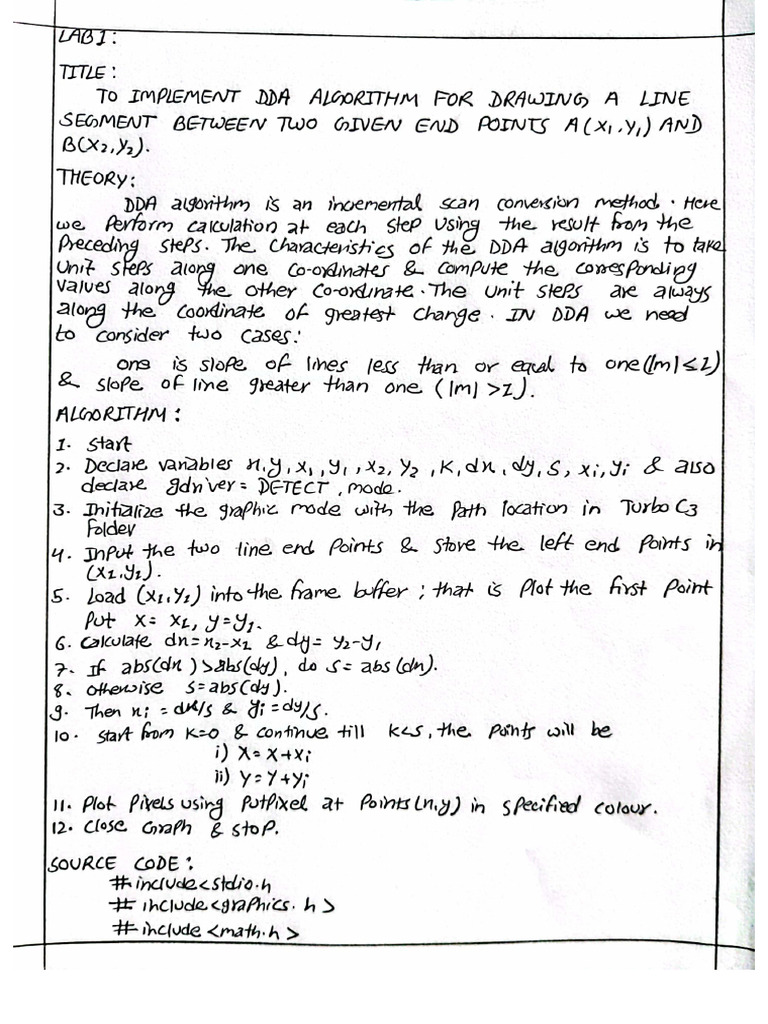 LAB1:
TITLE:
TO IMPLEMENT DDA ALGORITHM FOR DRAWING A LINE
SEGMENT BETWEEN TWO GIVEN END POINTS A(X1,Y1) AND
B(X2,Y2).
THEORY:
DDA algorithm is an incremental scan conversion method. Here
we perform calculation at each step using the result from the
preceding steps. The characteristics of the DDA algorithm is to take
unit steps along one co-ordinates & compute the corresponding
values along the other co-ordinate. The unit steps are always
along the coordinate of greatest change. IN DDA we need
to consider two cases:
one is slope of lines less than or equal to one (|m|≤1)
& slope of line greater than one (|m|>1).
ALGORITHM:
1. Start
2. Declare variables x,y,x1,y1,x2,y2,k,dx,dy,s,xi,yi & also
declare gdriver=DETECT, mode.
3. Initialize the graphic mode with the path location in Turbo C3
folder
4. Input the two line end points & store the left end points in
(x1,y1).
5. Load (x1,y1) into the frame buffer; that is plot the first point
put x=x1, y=y1.
6. Calculate dx=x2-x1 & dy=y2-y1
7. If abs(dx)>abs(dy), do s=abs(dx).
8. Otherwise s=abs(dy).
9. Then xi=dx/s & yi=dy/s.
10. Start from k=0 & continue till k<s, the points will be
i) X=X+xi
ii) Y=Y+yi
11. Plot pixels using putpixel at points(x,y) in specified colour.
12. Close Graph & stop.
SOURCE CODE:
#include<stdio.h
#include<graphics.h>
#include<math.h>